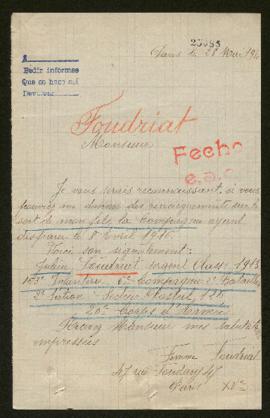 23683
Paris le 28 Mai 191
A
Pedir informes
Que se haga aquí
Devolver
Foudriat
Monsieur
Fecho
e.a.c.
Je vous serais reconnaissant, si vous
me donner des renseignements sur le
sort de mon fils la ayant
disparu le 8 Avril 1915.
Voici son signalement:
Julien Foudriat sergent Class 1913
103e Infanterie 6e Compagnie 2e Bataillon
2e Section Secteur Postal, 198.
20e Corps d'Armée.
Monsieur mes salutations
empressées
Femme Foudriat
47 rue Fondary 47
Paris XVe